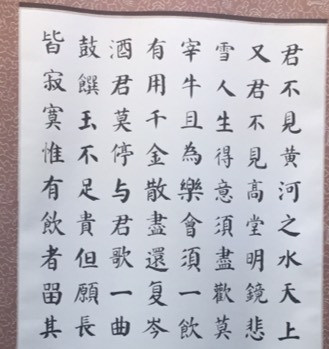 君不見黄河之水天上
又君不見高堂明鏡悲
雪人生得意須盡歡莫
宰牛且為樂會須一飲
有用千金散盡還复岑
酒君莫停与君歌一曲
鼓饌玉不足貴但願長
皆寂寞惟有飲者畱其